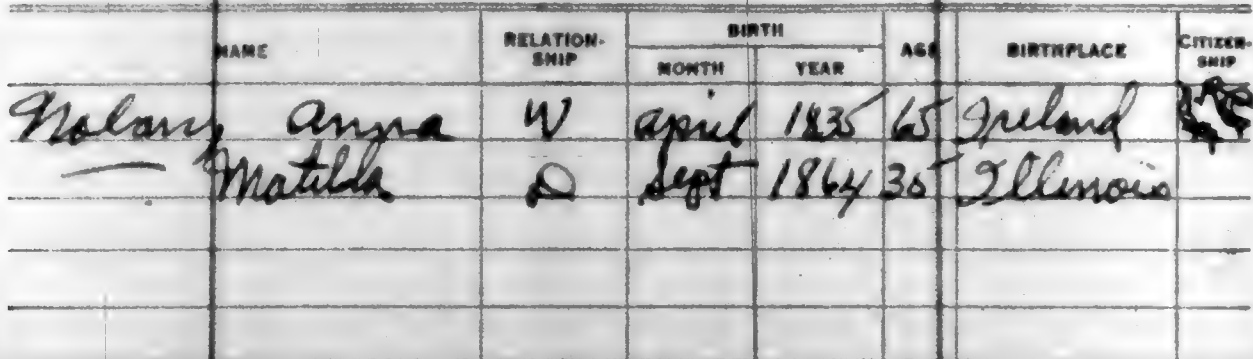 NAME RELATION-SHIP BIRTH MONTH YEAR AGE BIRTHPLACE CITIZEN-SHIP
Nolan, Anna W april 1835 65 Ireland
— Matilda D Sept 1864 35 Illinois